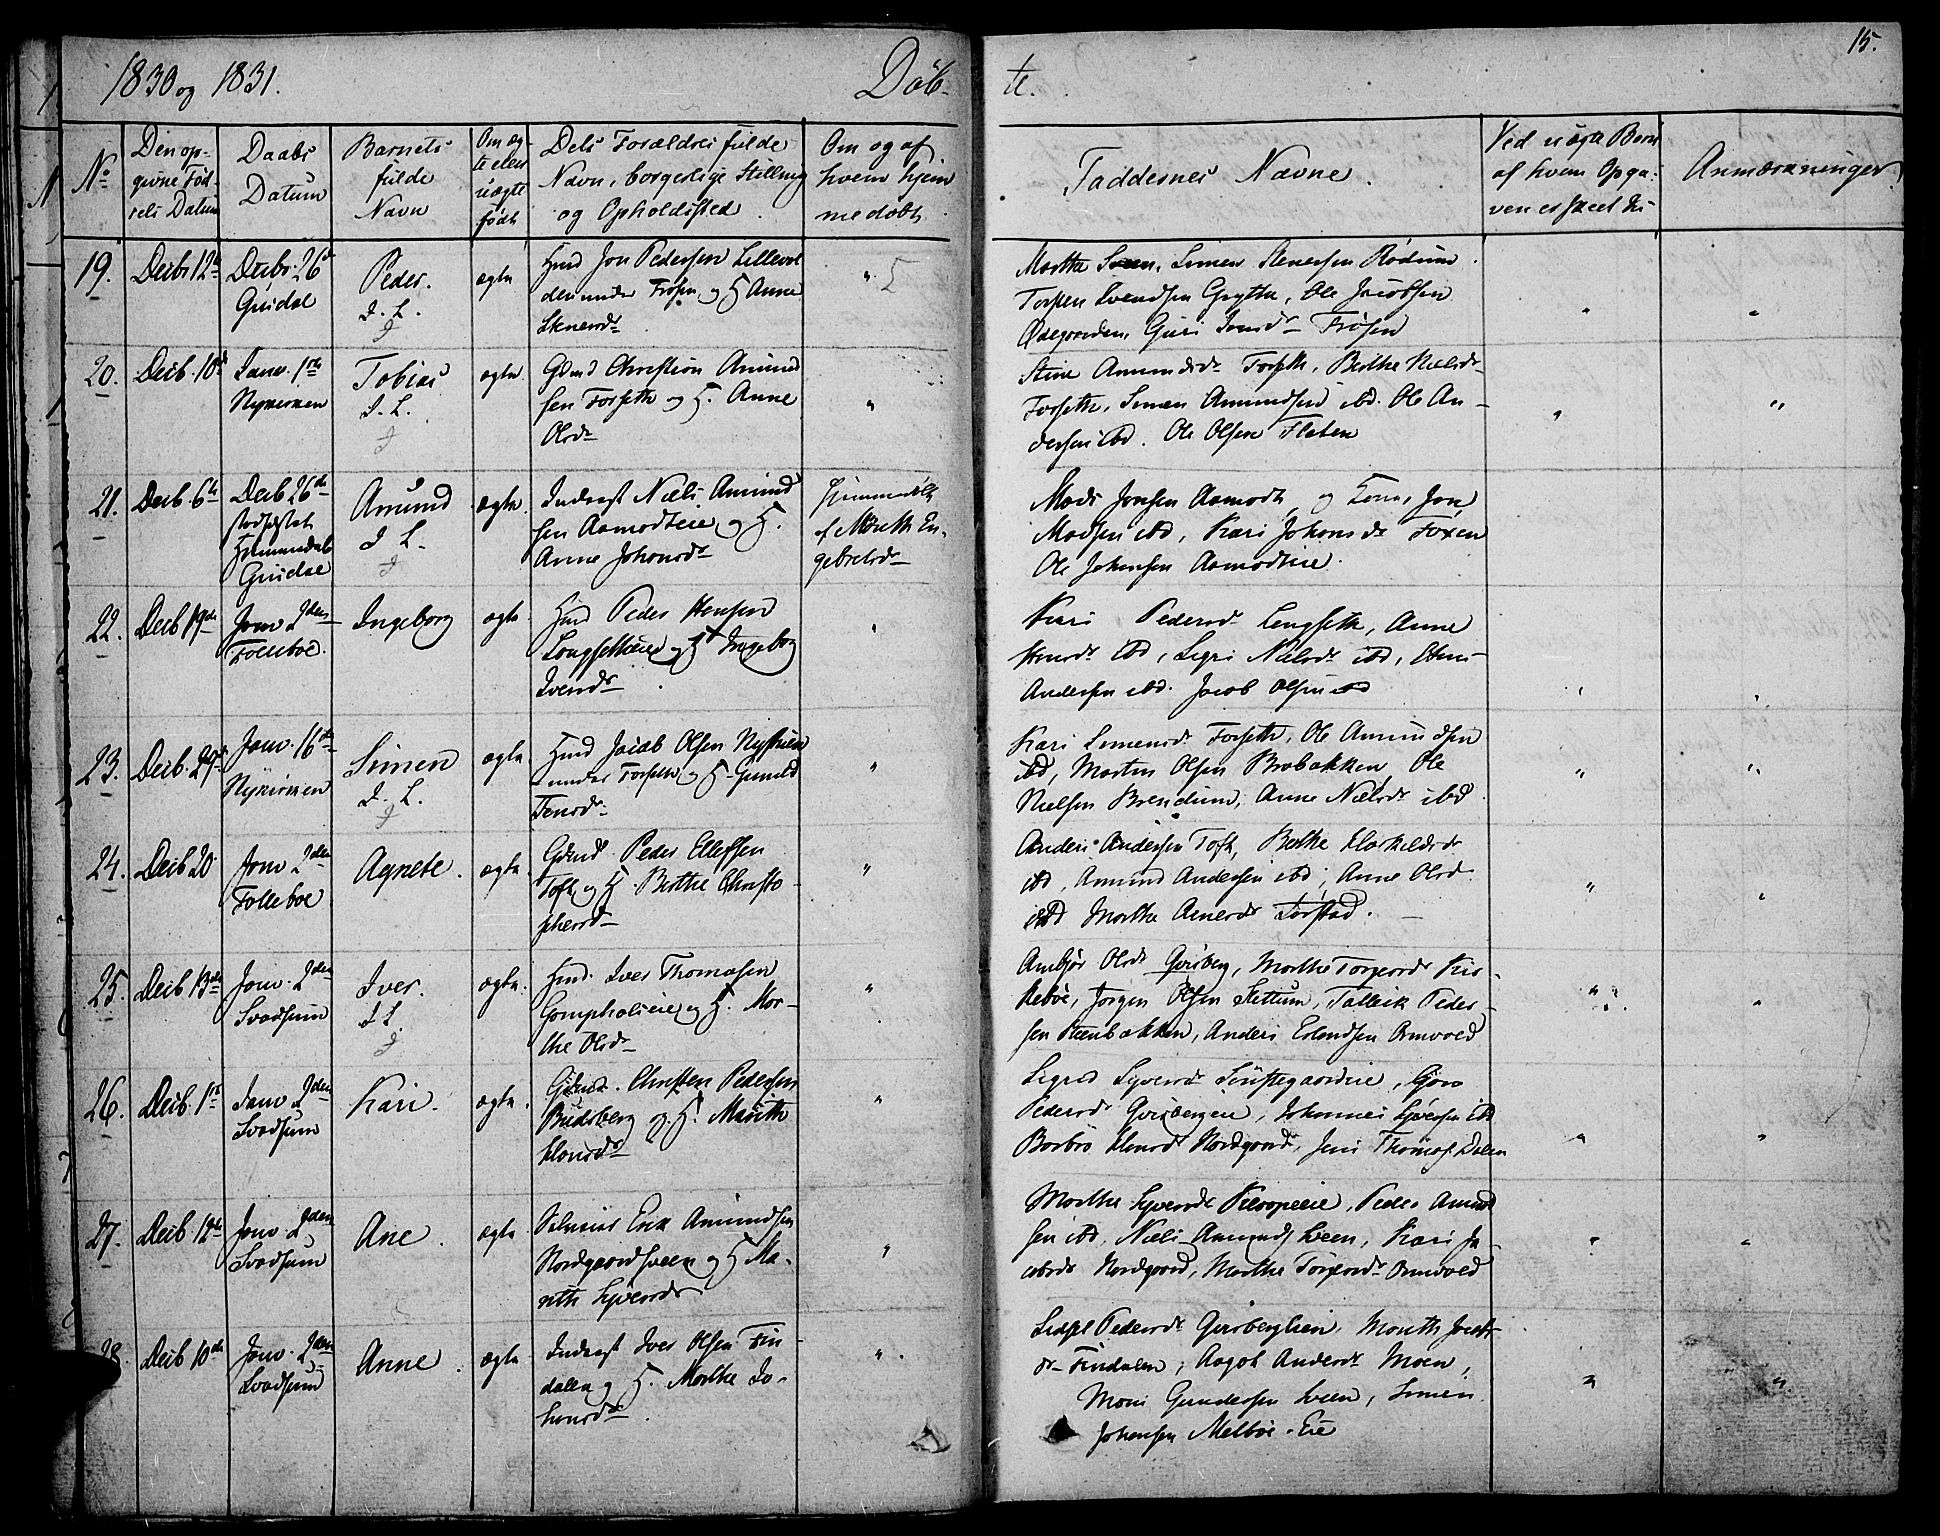 15.
1830 og 1831.
Döb-
te.
No
Den op-
givne Föd-
sels Datum
Daabs
Datum
Barnets
fulde
Navn
Om æg-
te eller
uægte
födt
Dets Forældres fulde
Navn, borgerlige Stilling
og Opholdssted
Om og af
hvem hjem
medöbt
Faddernes Navne.
Ved uægte Börn
af hvem Opga-
ven er skeet
Anmærkninger.
19.
Decbr 12te
Decbr. 26de
Gusdal
Peder.
I. L.
ægte
Hmd Jon Pedersen Lillevol
den under Frösen og H Anne
Stenersdr
" 5
Marthe Simen Stenersen Rödsun
Torsten Svendsen Grytte, Ole Jacobsen
Ödegaarden, Guri Frösen
20.
Decb. 10de
Janv. 1ste
Nykirken
Tobias
I. L.
ægte
Gdmd Christian Amund
sen Forseth og H. Anne
Olsdr
"
Stine Amundsdr Forseth, Berthe Nielsdr
Forseth, Simen Amundsen ibd. Ole An-
dersen ibd. Ole Olsen Flaten
21.
Decb. 6te
Decb 26de
stadfæstet
Hjemmedaab
Gusdal
Amund
I L.
ægte
Inderst Niels Amund
sen Aamodteie og H.
Anne Johansdr
Hjemmedöbt
af Marith En-
gebretsdr
Mads Jonsen Aamodt og Kone, Jon
Madsen ibd, Kari Johansdr Foxen
Ole Johansen Aamodteie.
22.
Decb 19de
Janv 2den
Folleboe.
Ingeborg
ægte
Hmd Peder Hansen
Longsetheie og H Ingeborg
Iversdr
Kari Pedersdr Lengseth, Anne
Hansdr ibd, Sigri Nielsdr ibd, Hans
Andersen ibd. Jacob Olsen ibd
23.
Decb. 29de
Janv. 16de
Nykirken
Simen
I. L.
ægte
Hmd Jacob Olsen Nystuen
under Forseth og H Gunild
Kari Simensdr Forseth, Ole Amundsen
ibd, Morten Olsen Brobakken, Ole
Nielsen Brendum, Anne Nielsdr ibd
24.
Decb 20
Janv 2den
Folleboe
Agnete.
ægte
Gdmd. Peder Ellefsen
Toft og H. Berthe Christo-
phersdr
Anders Andersen Toft, Berthe
ibd, Amund Andersen ibd, Anne Olsd
ibd Marthe Torstad.
25.
Decb 13de
Janv. 2den
Svadsum
Iver.
I L.
ægte.
Hmd. Iver Thomasen
og H. Mar-
the Olsdr
Olsdr Gvisberg, Marthe Torgersdr Kir-
keboe, Jorgen Olsen Slettum, Tallick Peder-
sen Steenbakken, Anders Erlandsen Ormvold
26.
Decb. 1ste
Janv 2den
Svadsum
Kari.
ægte.
Gdmd. Christen Pedersen
Budsberg og H. Marith
Hansdr
Sigrid Syversdr
Pedersdr Gvisbergeie, Johannes Syversen ibd
Barbro Hansdr Nordgaard, Jens Thomas. Dalen
27.
Decb. 12te
Janv. 2den
Svadsum
Ane.
ægte
Erik Amundsen
Nordgaardsveen og H Ma-
rith Syversdr
Marthe Syversdr Peder Amund
sen ibd, Niels Amunds. Sveen, Kari Ja-
cobsdr Nordgaard, Marthe Torgersdr Ormvold
28.
Decb 10de
Janv. 2den
Svadsum
Anne.
ægte
Inderst Iver Olsen Fin-
dalen og H. Marthe Jo-
hansdr
Sidsel Pedersdr Gvisberglien, Marith Jacobs
dr Findalen, Aagot Andersdr Moen,
Mons Gundersen Sveen, Simen
Johansen Melböe-Eie